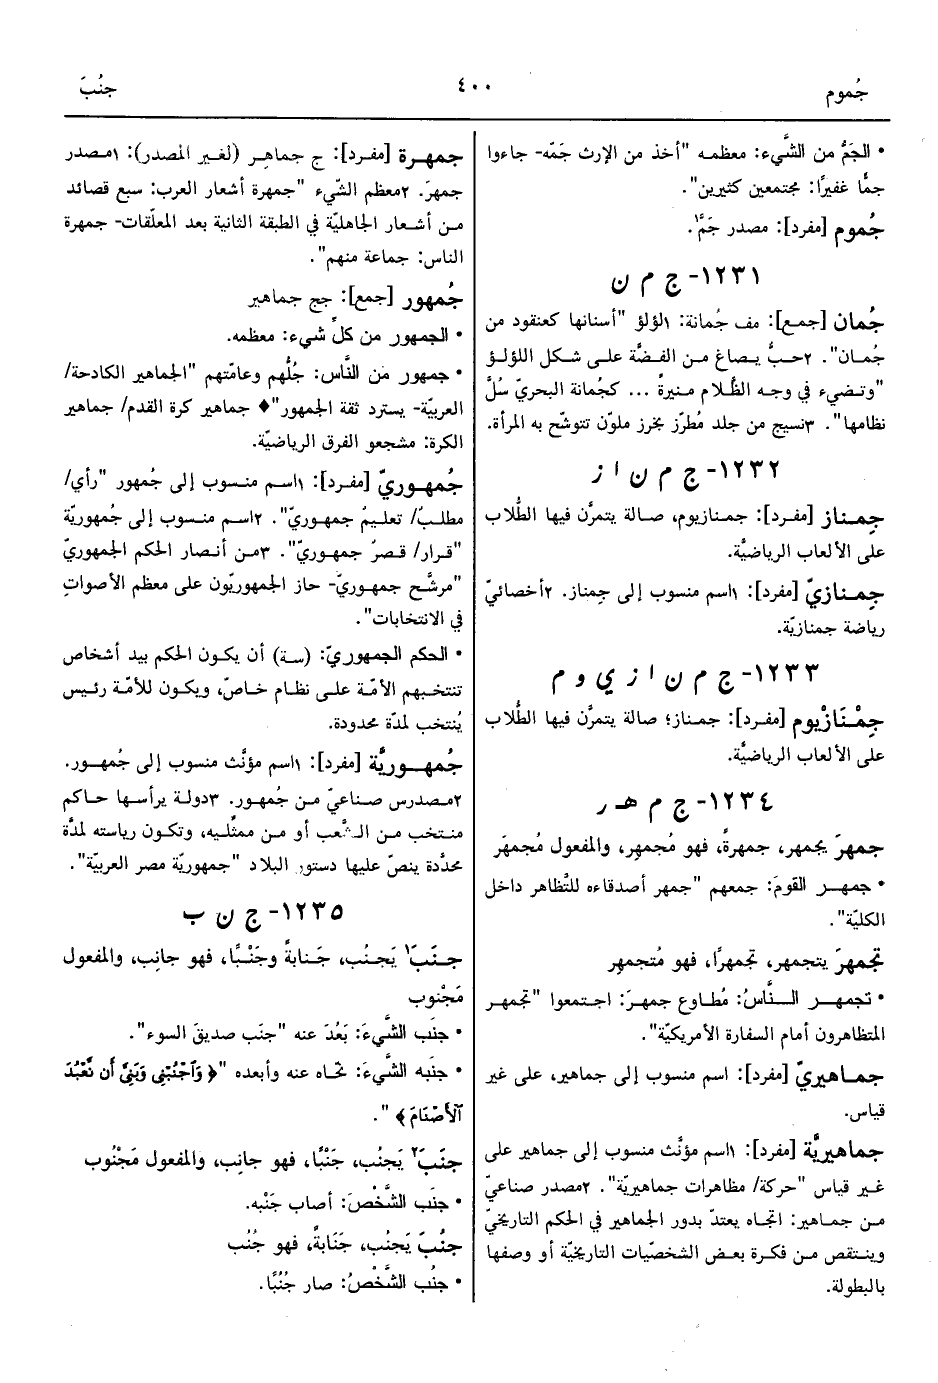 جُموم
٤٠٠
جنُبَ
• الجَمُّ من الشَّيء: معظمه "أخذ من الإرث جَمّه- جاءوا
جمًّا غفيرًا: مجتمعين كثيرين".
جُموم [مفرد]: مصدر جَمَّ١.
١٢٣١- ج م ن
جُمان [جمع]: مف جُمانة: ١لؤلؤ "أسنانها كعنقود من
جُمان". ٢حبٌّ يصاغ من الفضَّة على شكل اللؤلؤ
"وتضيء في وجه الظَّلام منيرةً ... كجُمانة البحريّ سُلَّ
نظامها". ٣نسيج من جلد مُطرَّز بخرز ملوَّن تتوشّح به المرأة.
١٢٣٢- ج م ن ا ز
جمناز [مفرد]: جمنازيوم، صالة يتمرَّن فيها الطُّلاب
على الألعاب الرياضيَّة.
جِمنازيّ [مفرد]: ١اسم منسوب إلى جِمناز. ٢أخصائيّ
رياضة جمنازيّة.
١٢٣٣- ج م ن ا ز ي و م
جِمْنَازْيوم [مفرد]: جمناز؛ صالة يتمرَّن فيها الطُّلاب
على الألعاب الرياضيَّة.
١٢٣٤- ج م هـ ر
جمهرَ يجمهر، جمهرةً، فهو مُجمهِر، والمفعول مُجمهَر
• جمهر القومَ: جمعهم "جمهر أصدقاءه للتَّظاهر داخل
الكليّة".
تجمهرَ يتجمهر، تجمهرًا، فهو مُتجمهِر
• تجمهر النَّاسُ: مُطاوع جمهرَ: اجتمعوا "تجمهر
المتظاهرون أمام السفارة الأمريكيّة".
جماهيريّ [مفرد]: اسم منسوب إلى جماهير، على غير
قياس.
جماهيريَّة [مفرد]: ١اسم مؤنَّث منسوب إلى جماهير على
غير قياس "حركة/ مظاهرات جماهيريّة". ٢مصدر صناعيّ
من جماهير: اتجاه يعتدّ بدور الجماهير في الحكم التاريخيّ
وينتقص من فكرة بعض الشخصيّات التاريخيّة أو وصفها
بالبطولة.
جمهرة [مفرد]: ج جماهِر (لغير المصدر): ١مصدر
جمهرَ. ٢معظم الشّيء "جمهرة أشعار العرب: سبع قصائد
من أشعار الجاهليّة في الطبقة الثانية بعد المعلّقات- جمهرة
الناس: جماعة منهم".
جُمهور [جمع]: جج جماهير
• الجمهور من كلِّ شيء: معظمه.
• جمهور من النَّاس: جُلُّهم وعامّتهم "الجماهير الكادحة/
العربيّة- يسترد ثقة الجمهور"♦ جماهير كرة القدم/ جماهير
الكرة: مشجعو الفرق الرياضيّة.
جُمهوريّ [مفرد]: ١اسم منسوب إلى جُمهور "رأي/
مطلبٌ/ تعليمٌ جمهوريّ". ٢اسم منسوب إلى جُمهوريّة
"قرار/ قصرٌ جمهوريّ". ٣من أنصار الحكم الجمهوريّ
"مرشَّح جمهوريّ- حاز الجمهوريّون على معظم الأصواتِ
في الانتخابات".
• الحكم الجمهوريّ: (سة) أن يكون الحكم بيد أشخاص
تنتخبهم الأمّة على نظام خاصّ، ويكون للأمّة رئيس
يُنتخب لمدّة محدودة.
جُمهوريَّة [مفرد]: ١اسم مؤنَّث منسوب إلى جُمهور.
٢مصدر صناعيّ من جُمهور. ٣دولة يرأسها حاكم
منتخب من الشَّعب أو من ممثِّليه، وتكون رياسته لمدَّة
محدَّدة ينصّ عليها دستور البلاد "جمهوريّة مصر العربيّة".
١٢٣٥- ج ن ب
جنَبَ١ يَجنُب، جَنابةً وجَنْبًا، فهو جانِب، والمفعول
مَجْنوب
• جنَب الشَّيءَ: بَعُدَ عنه "جنَب صديقَ السوء".
• جنَبه الشَّيءَ: نحّاه عنه وأبعده "﴿ وَٱجْنُبْنِى وَبَنِىَّ أَن نَّعْبُدَ
ٱلْأَصْنَامَ ﴾".
جنَبَ٢ يَجنُب، جَنْبًا، فهو جانِب، والمفعول مَجْنُوب
• جنَب الشَّخْصَ: أصاب جَنْبه.
جنُبَ يَجنُب، جَنَابةً، فهو جُنُب
• جنُب الشَّخْصُ: صار جُنُبًا.